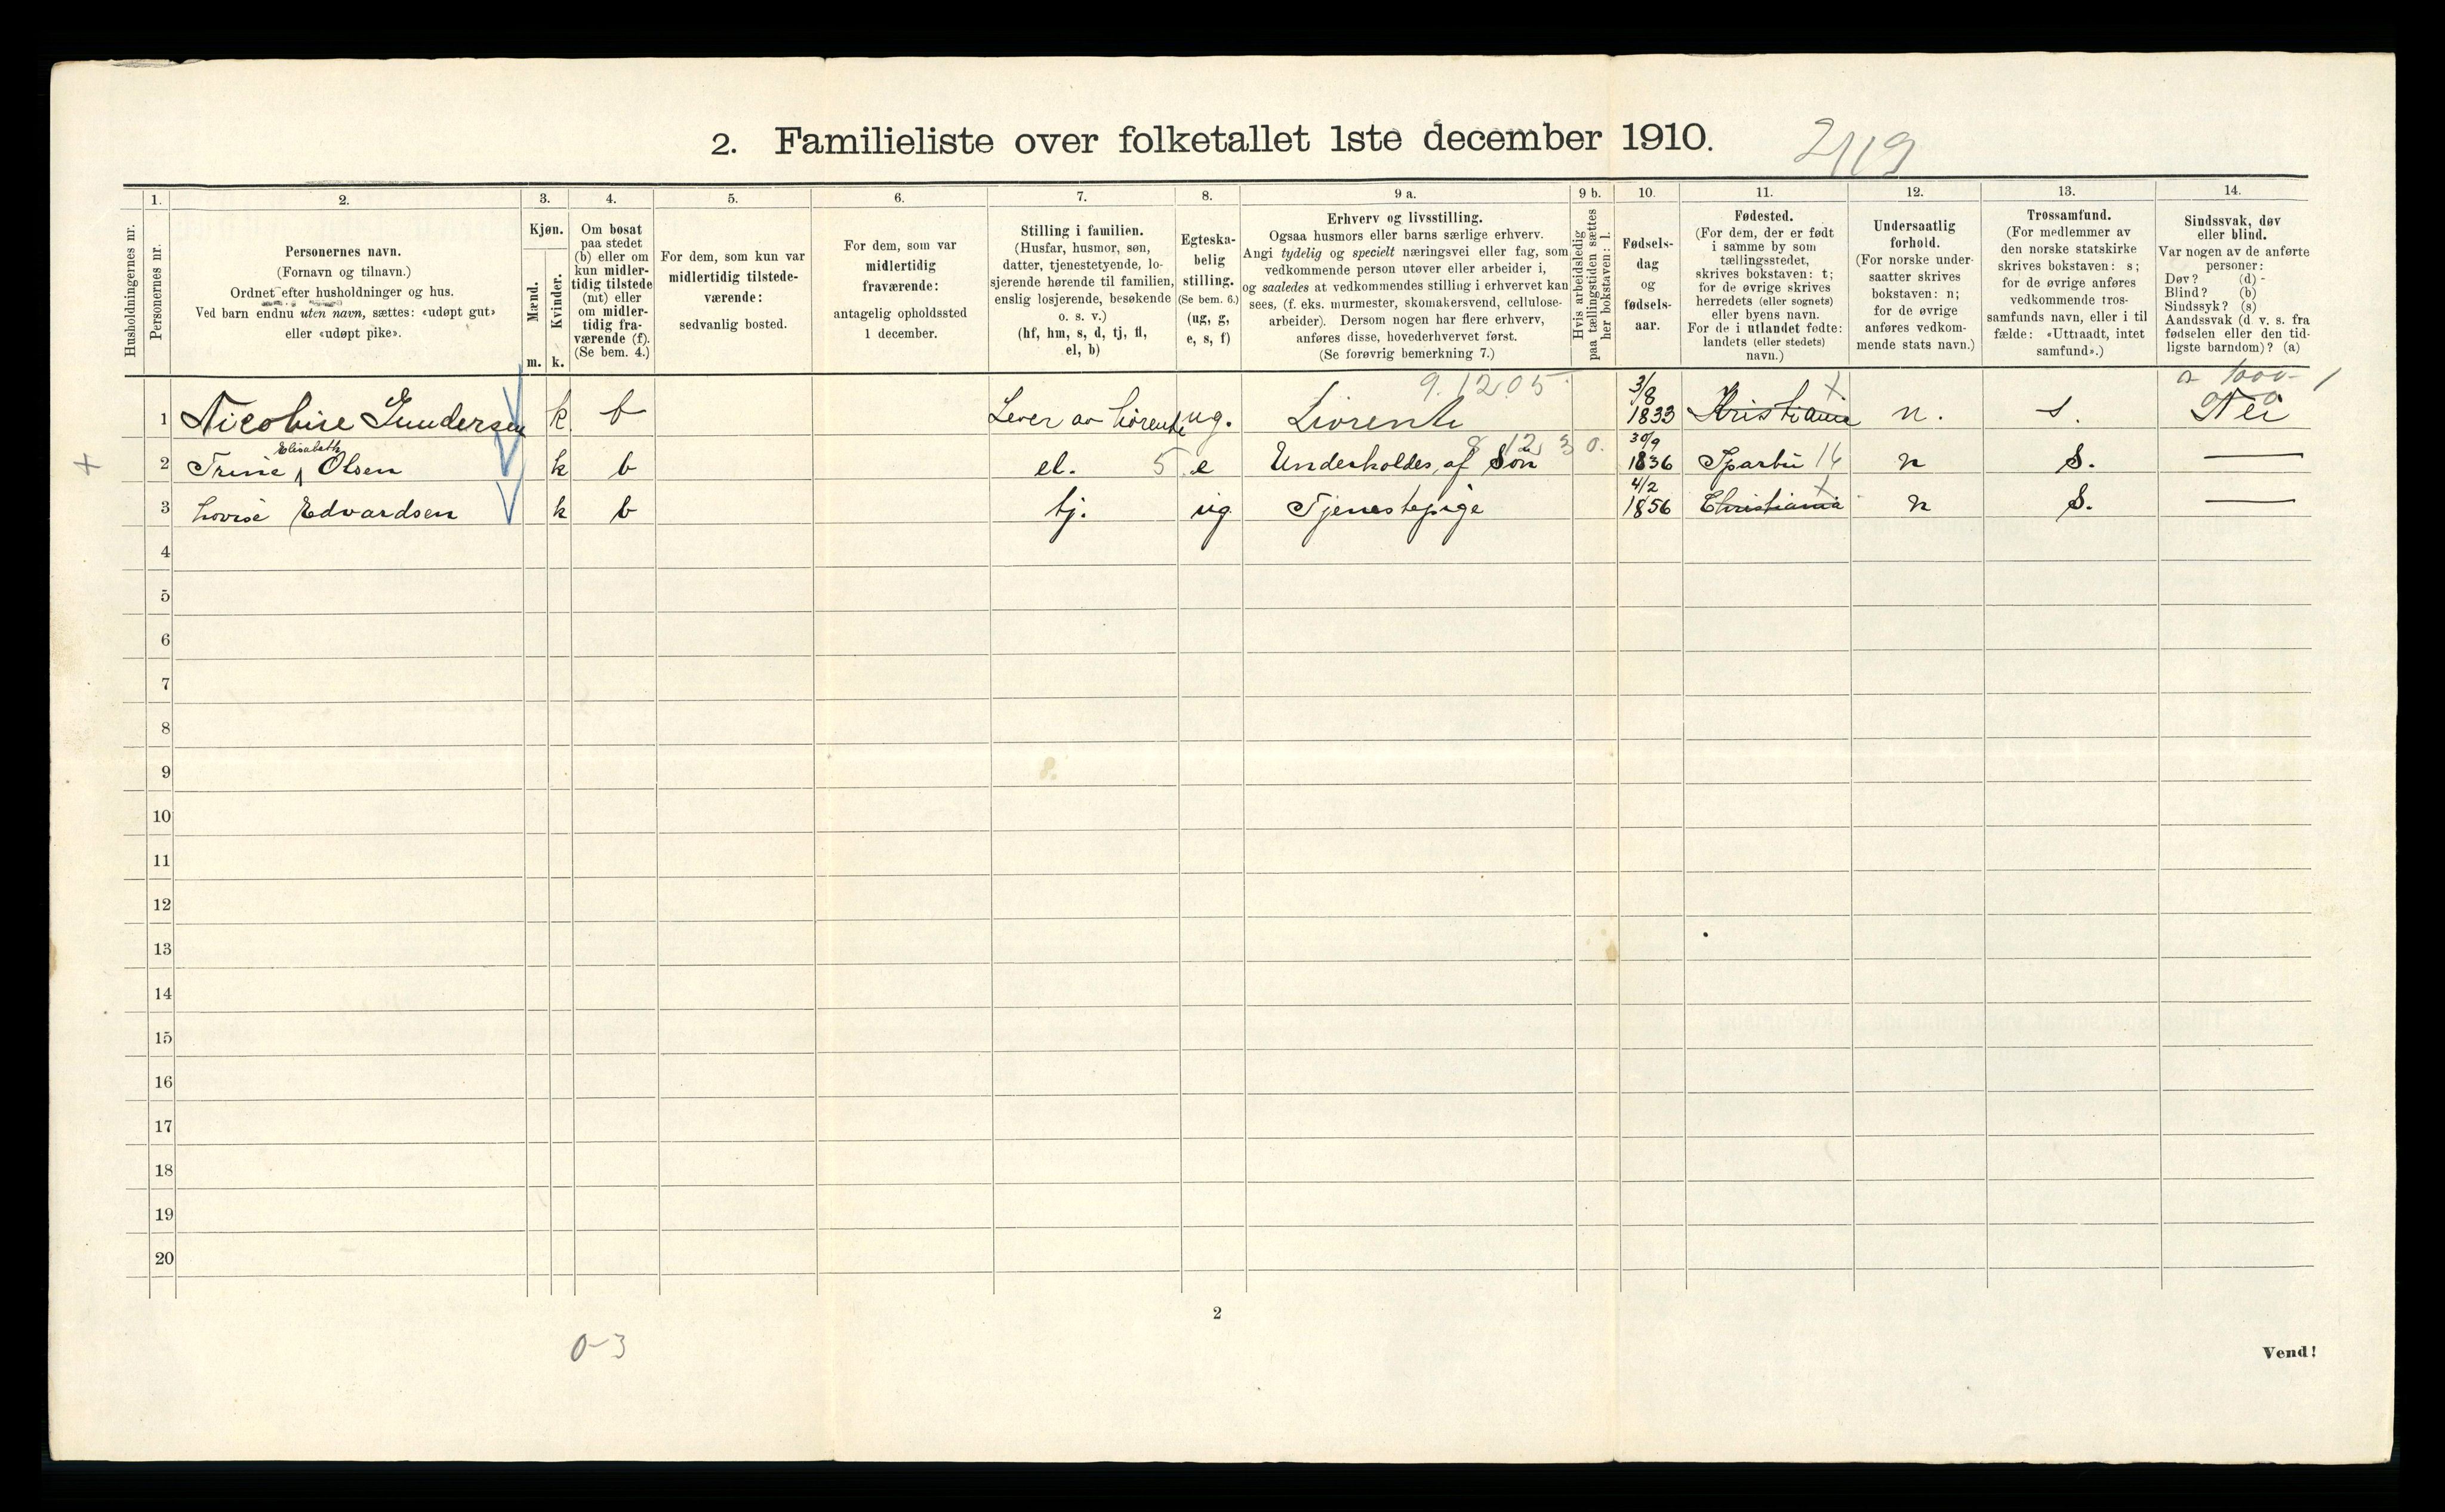 2. Familieliste over folketallet 1ste december 1910.
2119
Husholdningernes nr.
1.
Personernes nr.
2.
Personernes navn.
(Fornavn og tilnavn.)
Ordnet efter husholdninger og hus.
Ved barn endnu uten navn, sættes: «udøpt gut»
eller «udøpt pike».
3.
Kjøn.
Mænd.
Kvinder.
m. k.
4.
Om bosat
paa stedet
(b) eller om
kun midler-
tidig tilstede
(mt) eller
om midler-
tidig fra-
værende (f).
(Se bem. 4.)
5.
For dem, som kun var
midlertidig tilstede-
værende:
sedvanlig bosted.
6.
For dem, som var
midlertidig
fraværende:
antagelig opholdssted
1 december.
7.
Stilling i familien.
(Husfar, husmor, søn,
datter, tjenestetyende, lo-
sjerende hørende til familien,
enslig losjerende, besøkende
o. s. v.)
(hf, hm, s, d, tj, fl,
el, b)
8.
Egteska-
belig
stilling.
(Se bem. 6.)
(ug, g,
e, s, f)
9 a.
Erhverv og livsstilling.
Ogsaa husmors eller barns særlige erhverv.
Angi tydelig og specielt næringsvei eller fag, som
vedkommende person utøver eller arbeider i,
og saaledes at vedkommendes stilling i erhvervet kan
sees, (f. eks. murmester, skomakersvend, cellulose-
arbeider). Dersom nogen har flere erhverv,
anføres disse, hovederhvervet først.
(Se forøvrig bemerkning 7.)
9 b.
Hvis arbeidsledig
paa tællingstiden sættes
her bokstaven: l.
10.
Fødsels-
dag
og
fødsels-
aar.
11.
Fødested.
(For dem, der er født
i samme by som
tællingsstedet,
skrives bokstaven: t;
for de øvrige skrives
herredets (eller sognets)
eller byens navn.
For de i utlandet fødte:
landets (eller stedets)
navn.)
12.
Undersaatlig
forhold.
(For norske under-
saatter skrives
bokstaven: n;
for de øvrige
anføres vedkom-
mende stats navn.)
13.
Trossamfund.
(For medlemmer av
den norske statskirke
skrives bokstaven: s;
for de øvrige anføres
vedkommende tros-
samfunds navn, eller i til
fælde: «Uttraadt, intet
samfund».)
14.
Sindssvak, døv
eller blind.
Var nogen av de anførte
personer:
Døv? (d)
Blind? (b)
Sindssyk? (s)
Aandssvak (d. v. s. fra
fødselen eller den tid-
ligste barndom)? (a)
9.12.05
1 Nicoline Gundersen k. b Lever av livrente ug. Livrente 3/8 1833 Kristiania n. s. Nei
2 Trine Elisabeth Olsen k b el. 5 e Underholdes af Søn 30/9 1836 Sparbu 16 n S. —
3 Lovise Edvardsen k b tj. ug Tjenestepige 4/2 1856 Christiania n S. —
4
5
6
7
8
9
10
11
12
13
14
15
16
17
18
19
20
2
0-3
Vend!